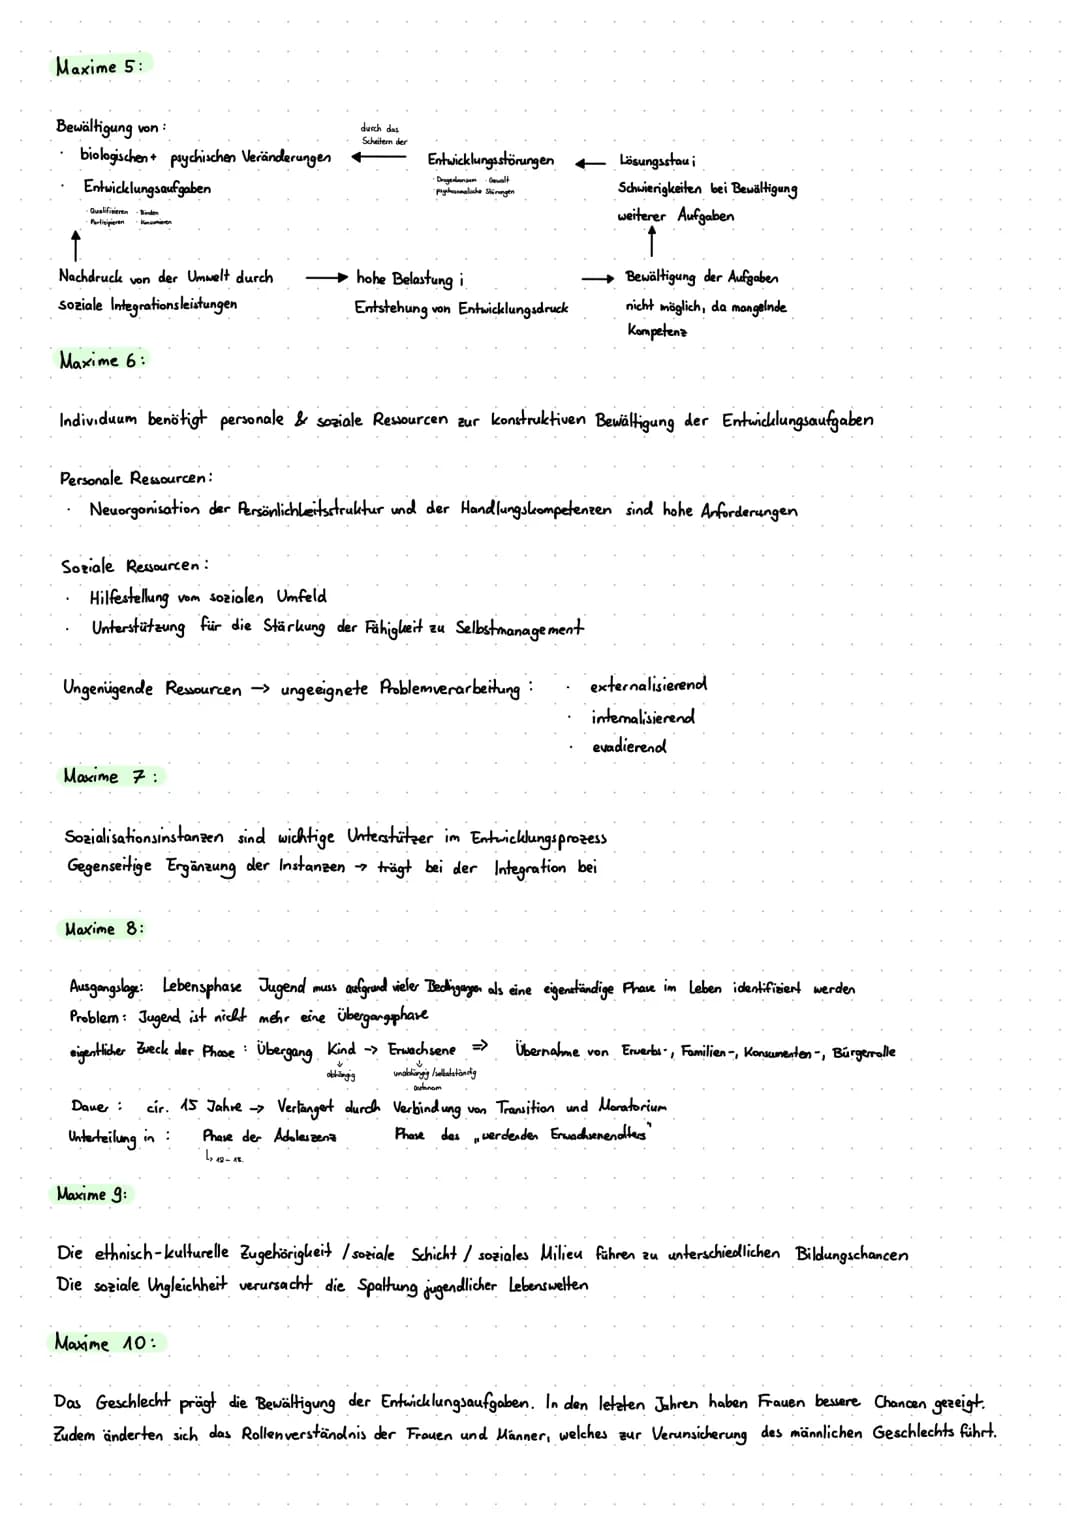 Maxime 5:
Bewältigung von:
· biologischen + psychischen Veränderungen
· Entwicklungsaufgaben
· Qualifizieren · Binden
· Partizipieren · Konsumieren
durch das
Scheitern der
Entwicklungsstörungen
· Drogenkonsum · Gewalt
· psychosomatische Störungen
Lösungsstau;
Schwierigkeiten bei Bewältigung
weiterer Aufgaben
Nachdruck von der Umwelt durch
soziale Integrationsleistungen
hohe Belastung;
Entstehung von Entwicklungsdruck
Bewältigung der Aufgaben
nicht möglich, da mangelnde
Kompetenz
Maxime 6:
Individuum benötigt personale & soziale Ressourcen zur konstruktiven Bewältigung der Entwicklungsaufgaben
Personale Ressourcen:
· Neuorganisation der Persönlichkeitsstruktur und der Handlungskompetenzen sind hohe Anforderungen
Soziale Ressourcen:
· Hilfestellung vom sozialen Umfeld
· Unterstützung für die Stärkung der Fähigkeit zu Selbstmanagement
Ungenügende Ressourcen → ungeeignete Problemverarbeitung: · externalisierend
· internalisierend
· evadierend
Maxime 7:
Sozialisationsinstanzen sind wichtige Unterstützer im Entwicklungsprozess
Gegenseitige Ergänzung der Instanzen → trägt bei der Integration bei
Maxime 8:
Ausgangslage: Lebensphase Jugend muss aufgrund vieler Bedingungen als eine eigenständige Phase im Leben identifiziert werden
Problem: Jugend ist nicht mehr eine Übergangsphase
eigentlicher Zweck der Phase: Übergang Kind → Erwachsene ⇒ Übernahme von Erwerbs-, Familien-, Konsumenten-, Bürgerrolle
abhängig unabhängig/selbstständig
autonom
Dauer: cir. 15 Jahre → Verlängert durch Verbindung von Transition und Moratorium
Unterteilung in: Phase der Adoleszenz Phase des „werdenden Erwachsenenalters"
↳ 12-18
Maxime 9:
Die ethnisch-kulturelle Zugehörigkeit / soziale Schicht / soziales Milieu führen zu unterschiedlichen Bildungschancen
Die soziale Ungleichheit verursacht die Spaltung jugendlicher Lebenswelten
Maxime 10:
Das Geschlecht prägt die Bewältigung der Entwicklungsaufgaben. In den letzten Jahren haben Frauen bessere Chancen gezeigt.
Zudem änderten sich das Rollenverständnis der Frauen und Männer, welches zur Verunsicherung des männlichen Geschlechts führt.